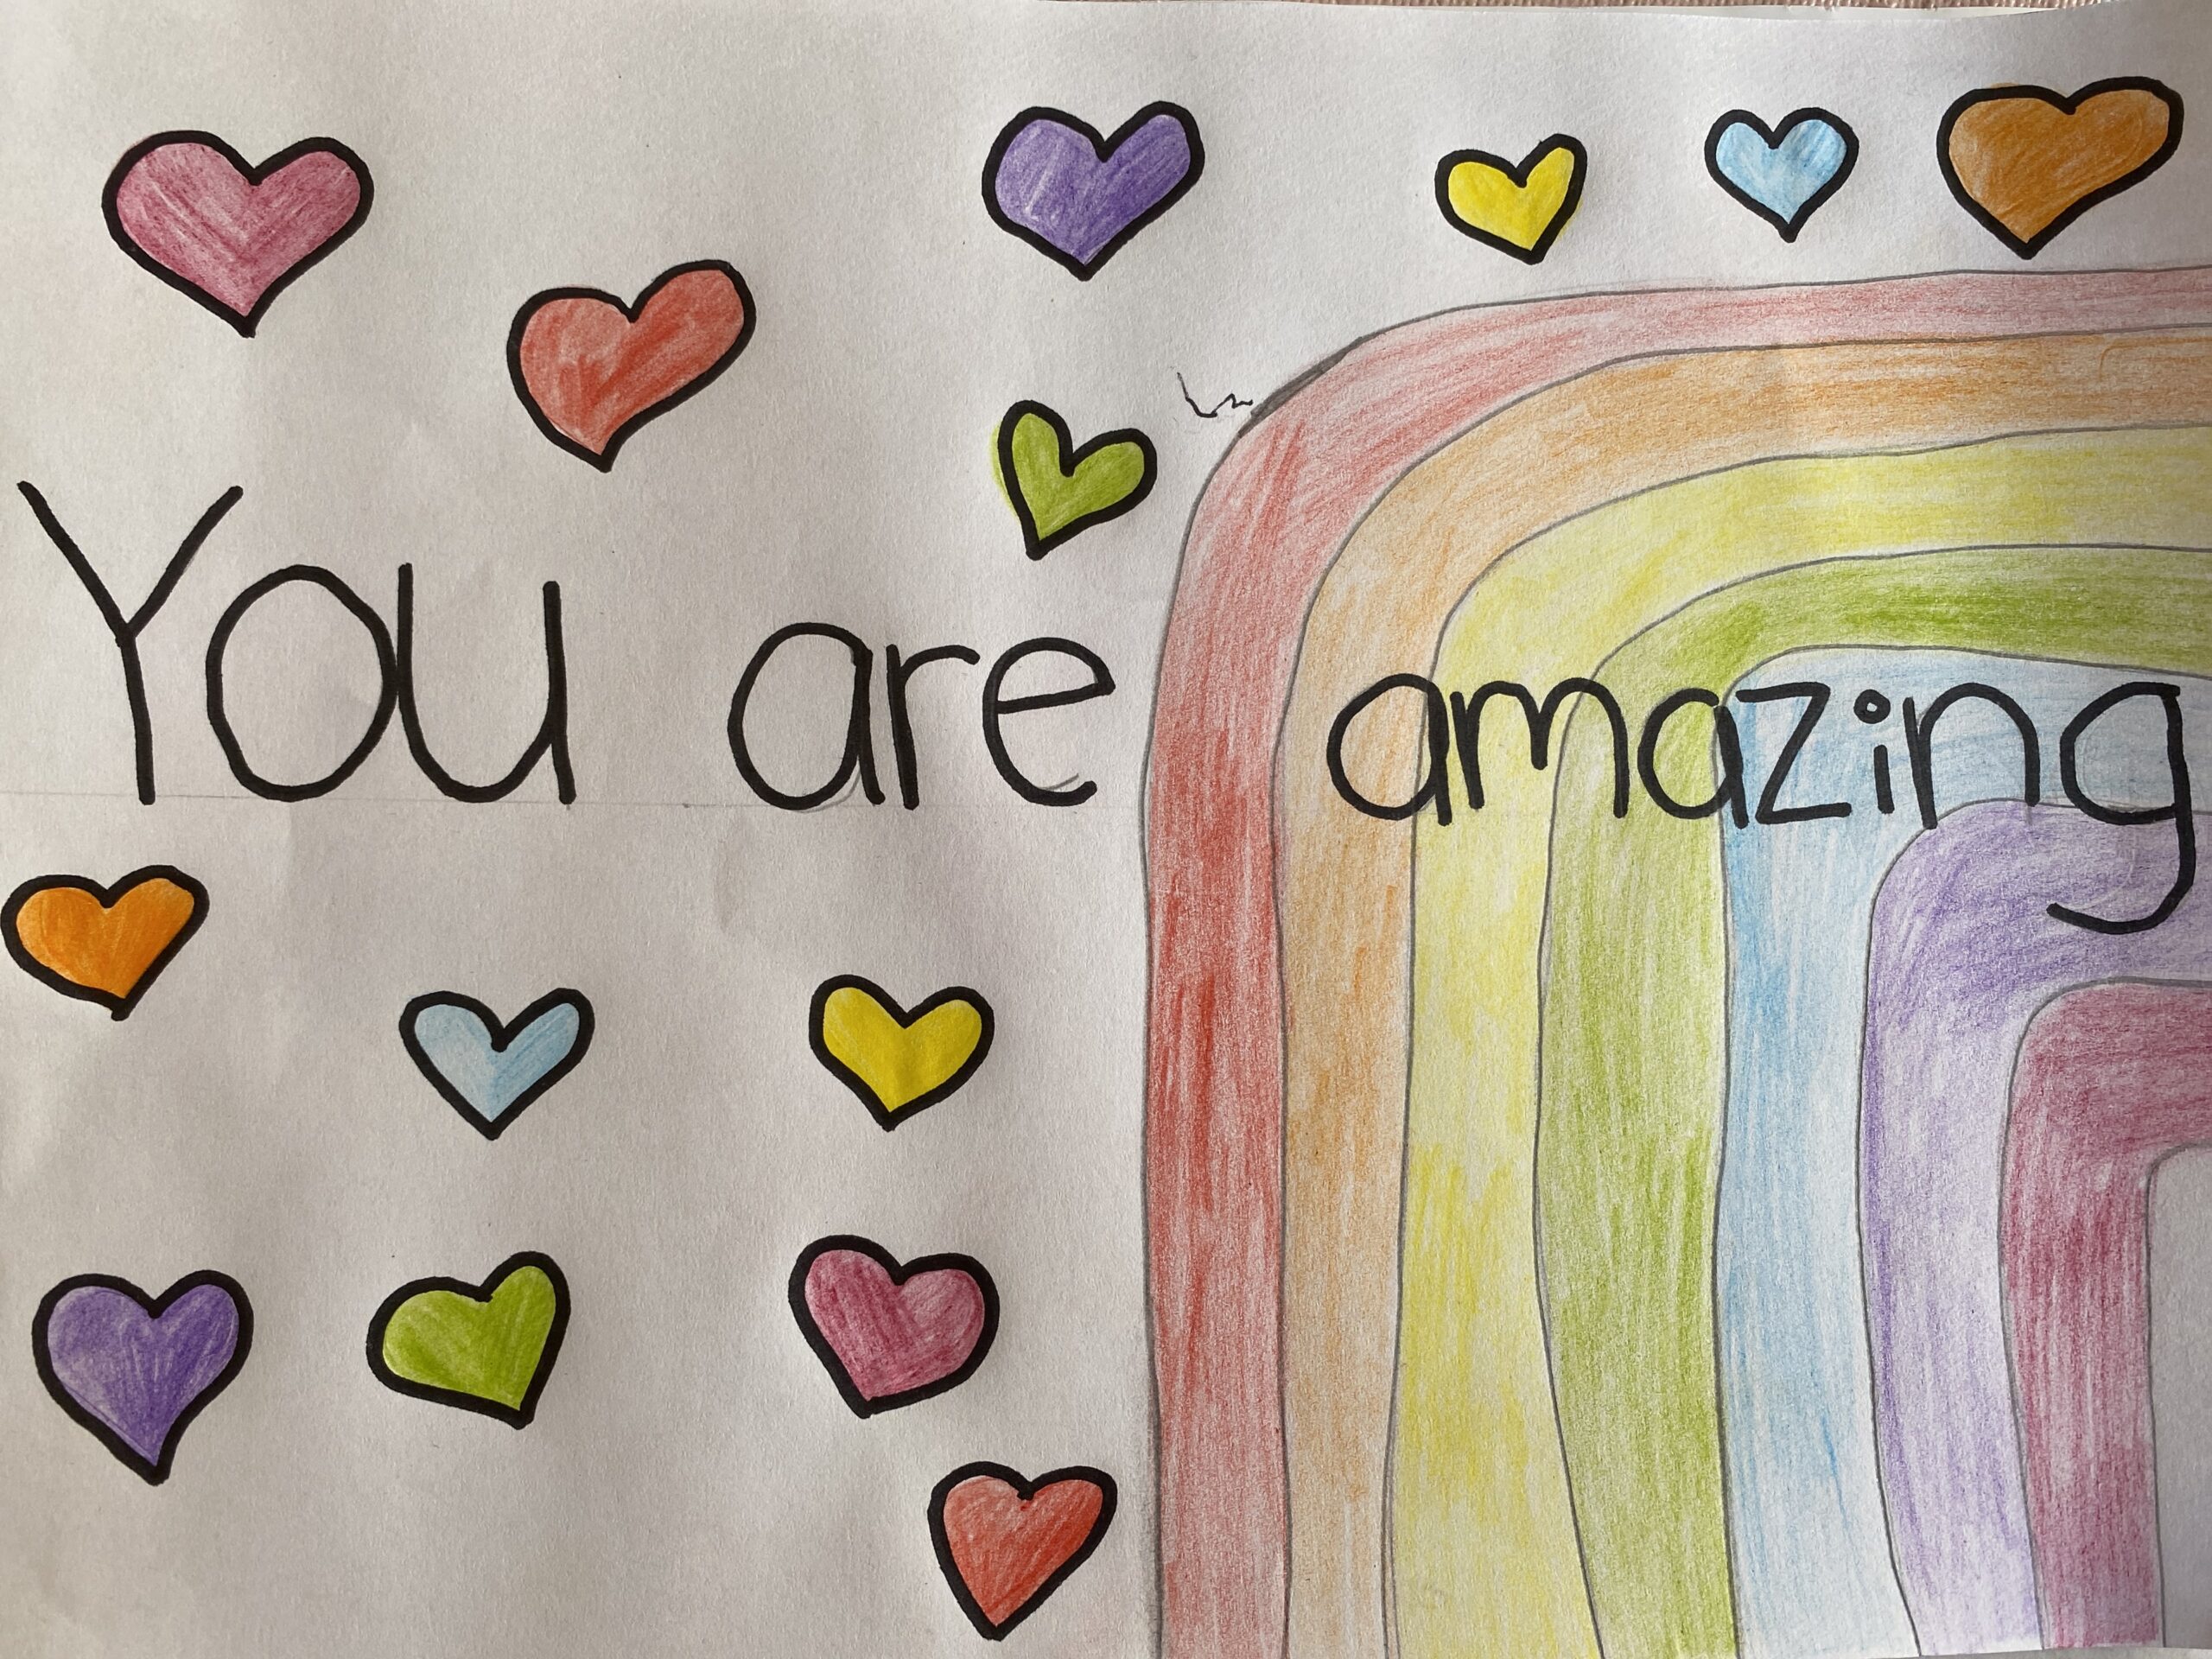 You are amazing